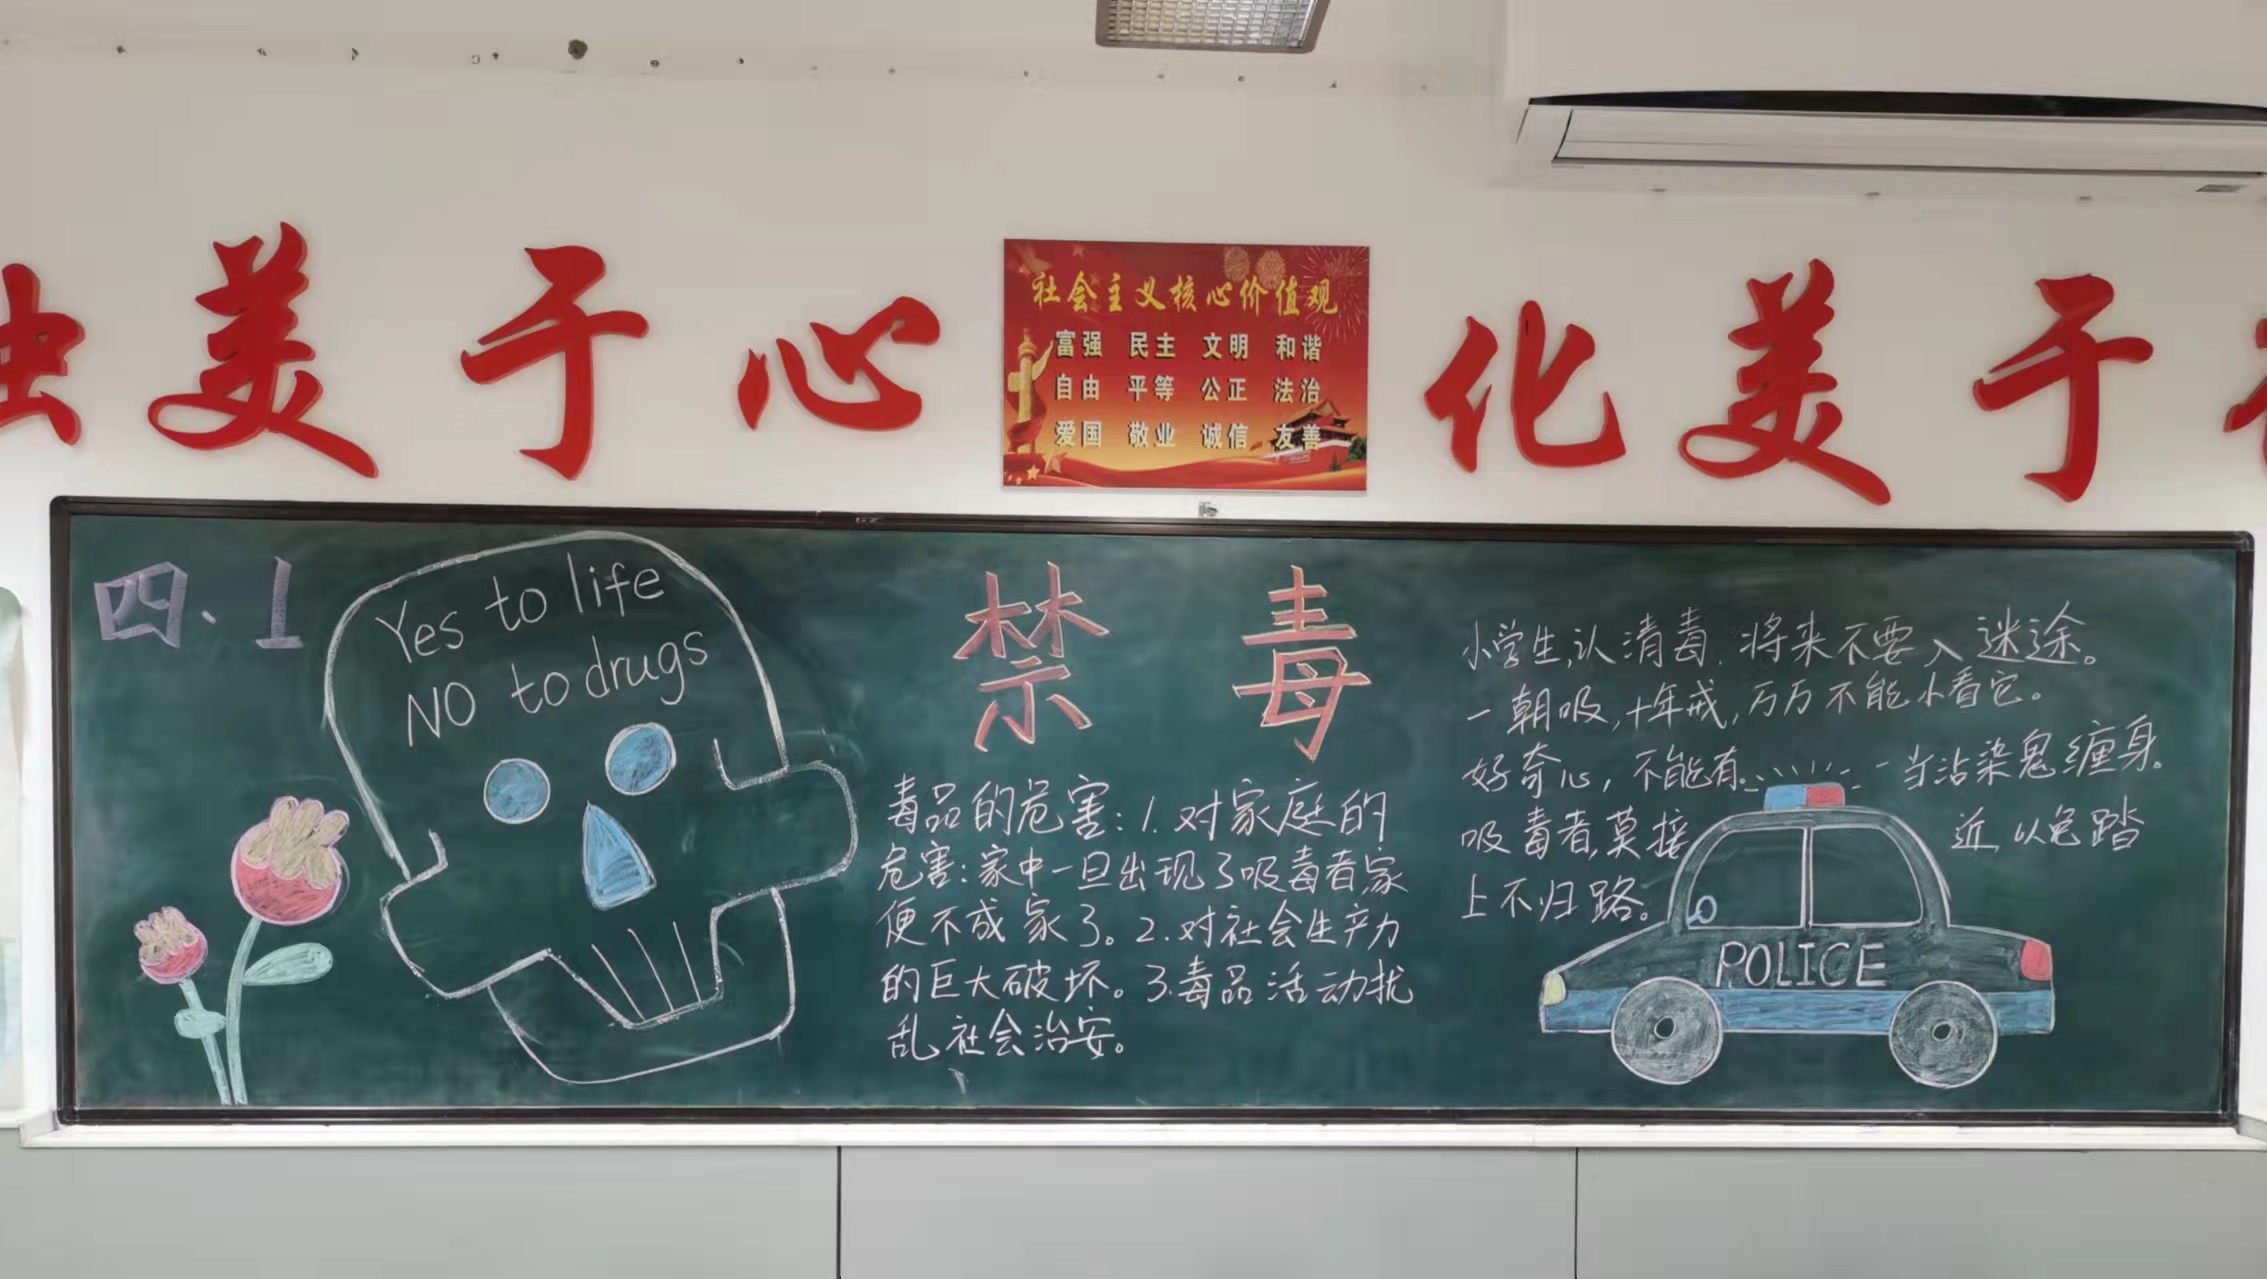 美于心
社会主义核心价值观
富强 民主 文明 和谐
自由 平等 公正 法治
爱国 敬业 诚信 友善
化美于
四、1
Yes to life
NO to drugs
禁毒
毒品的危害:1.对家庭的
危害:家中一旦出现了吸毒者,家
便不成家了。2.对社会生产力
的巨大破坏。3.毒品活动扰
乱社会治安。
小学生,认清毒,将来不要入迷途。
一朝吸,十年戒,万万不能小看它。
好奇心,不能有 一当沾染鬼缠身。
吸毒者,莫接近,以免踏
上不归路。
POLICE